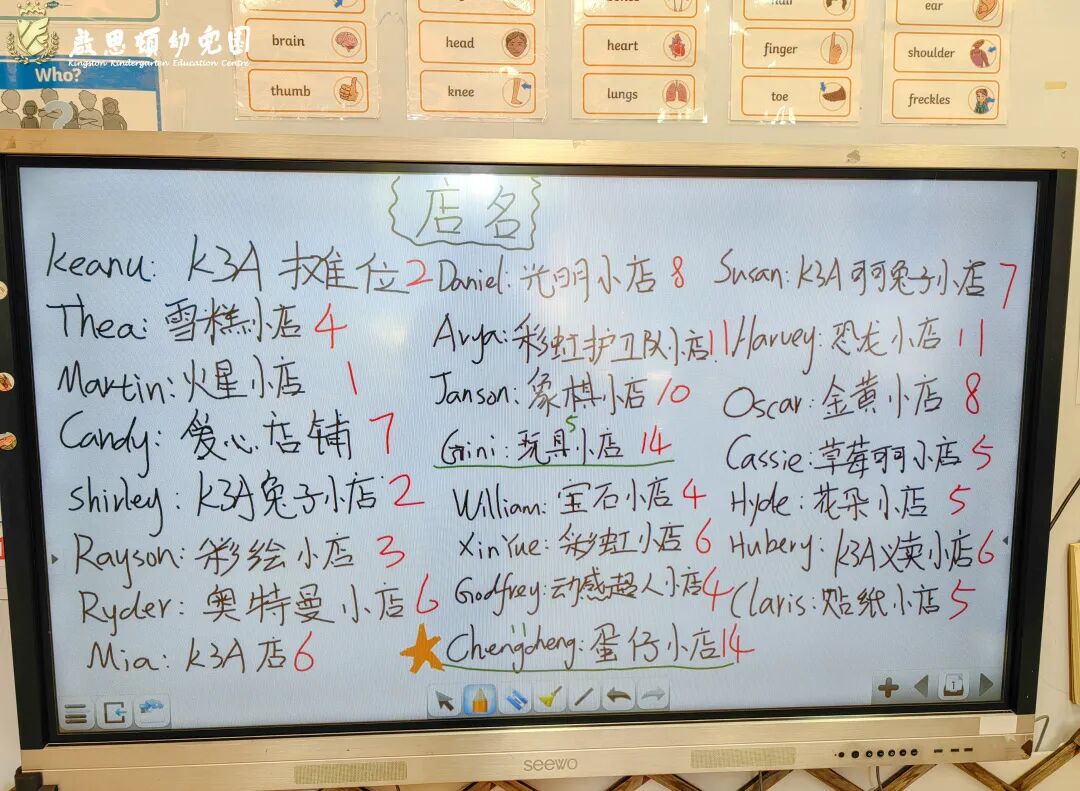 啟思頓幼兒園
Kingston Kindergarten Education Centre
Who?
brain
thumb
head
knee
heart
lungs
finger
toe
ear
shoulder
freckles
店名
Keanu: K3A 摊位 2
Thea: 雪糕小店 4
Martin: 火星小店 1
Candy: 爱心店铺 7
Shirley: K3A兔子小店 2
Rayson: 彩绘小店 3
Ryder: 奥特曼小店 6
Mia: K3A店 6
Daniel: 光明小店 8
Arya: 彩虹护卫队小店 11
Janson: 象棋小店 10
Gini: 玩具小店 14
5
William: 宝石小店 4
XinYue: 彩虹小店 6
Godfrey: 动感超人小店 4
11
Chengcheng: 蛋仔小店 14
Susan: K3A可可兔子小店 7
Harvey: 恐龙小店 11
Oscar: 金黄小店 8
Cassie: 草莓可可小店 5
Hyde: 花朵小店 5
Hubery: K3A义卖小店 6
Claris: 贴纸小店 5
seewo